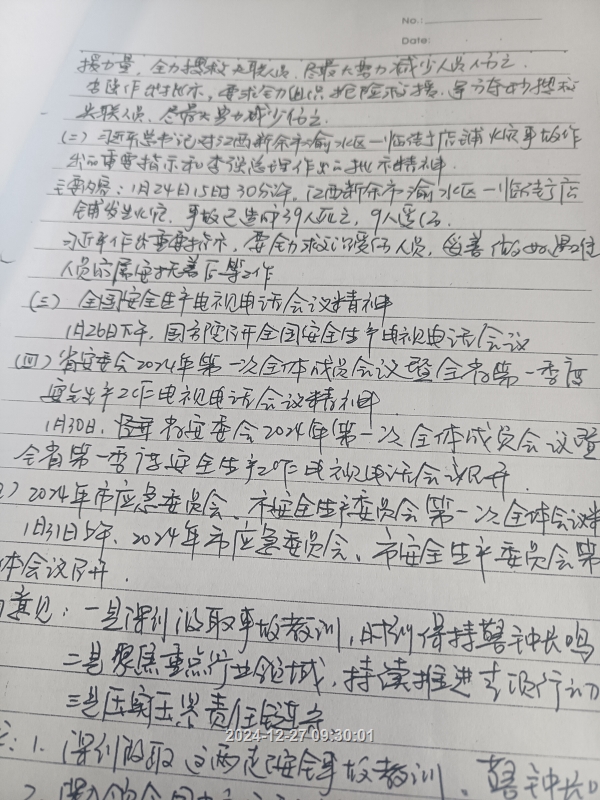 No:
Date:
援力量,全力搜救失联人员,尽最大努力减少人员伤亡
李强作出批示,要求全力组织抢险救援,千方百计搜救
失联人员,尽最大努力减少伤亡。
(二)习近平总书记对江西新余市渝水区一临街店铺火灾事故作
出的重要指示和李强总理作出的批示精神.
主要内容:1月24日15时30分许,江西新余市渝水区一临街店
铺发生火灾,事故已造成39人死亡,9人受伤.
习近平作出重要指示,要全力救治受伤人员,妥善做好遇难
人员家属安抚善后等工作
(三)全国安全生产电视电话会议精神
1月26日下午,国务院召开全国安全生产电视电话会议
(四)省安委会2024年第一次全体成员会议暨全省第一季度
安全生产工作电视电话会议精神.
1月30日,省安委会2024年第一次全体成员会议暨
全省第一季度安全生产工作电视电话会议召开.
)2024年市应急委员会、市安全生产委员会第一次全体会议
1月31日上午,2024年市应急委员会、市安全生产委员会第
体会议召开.
意见:一是深刻汲取事故教训,时刻保持警钟长鸣
二是聚焦重点行业领域,持续推进专项行动
三是压实压紧责任链条
2024-12-27 09:30:01
1.深刻汲取这两起安全事故教训,警钟长
2.